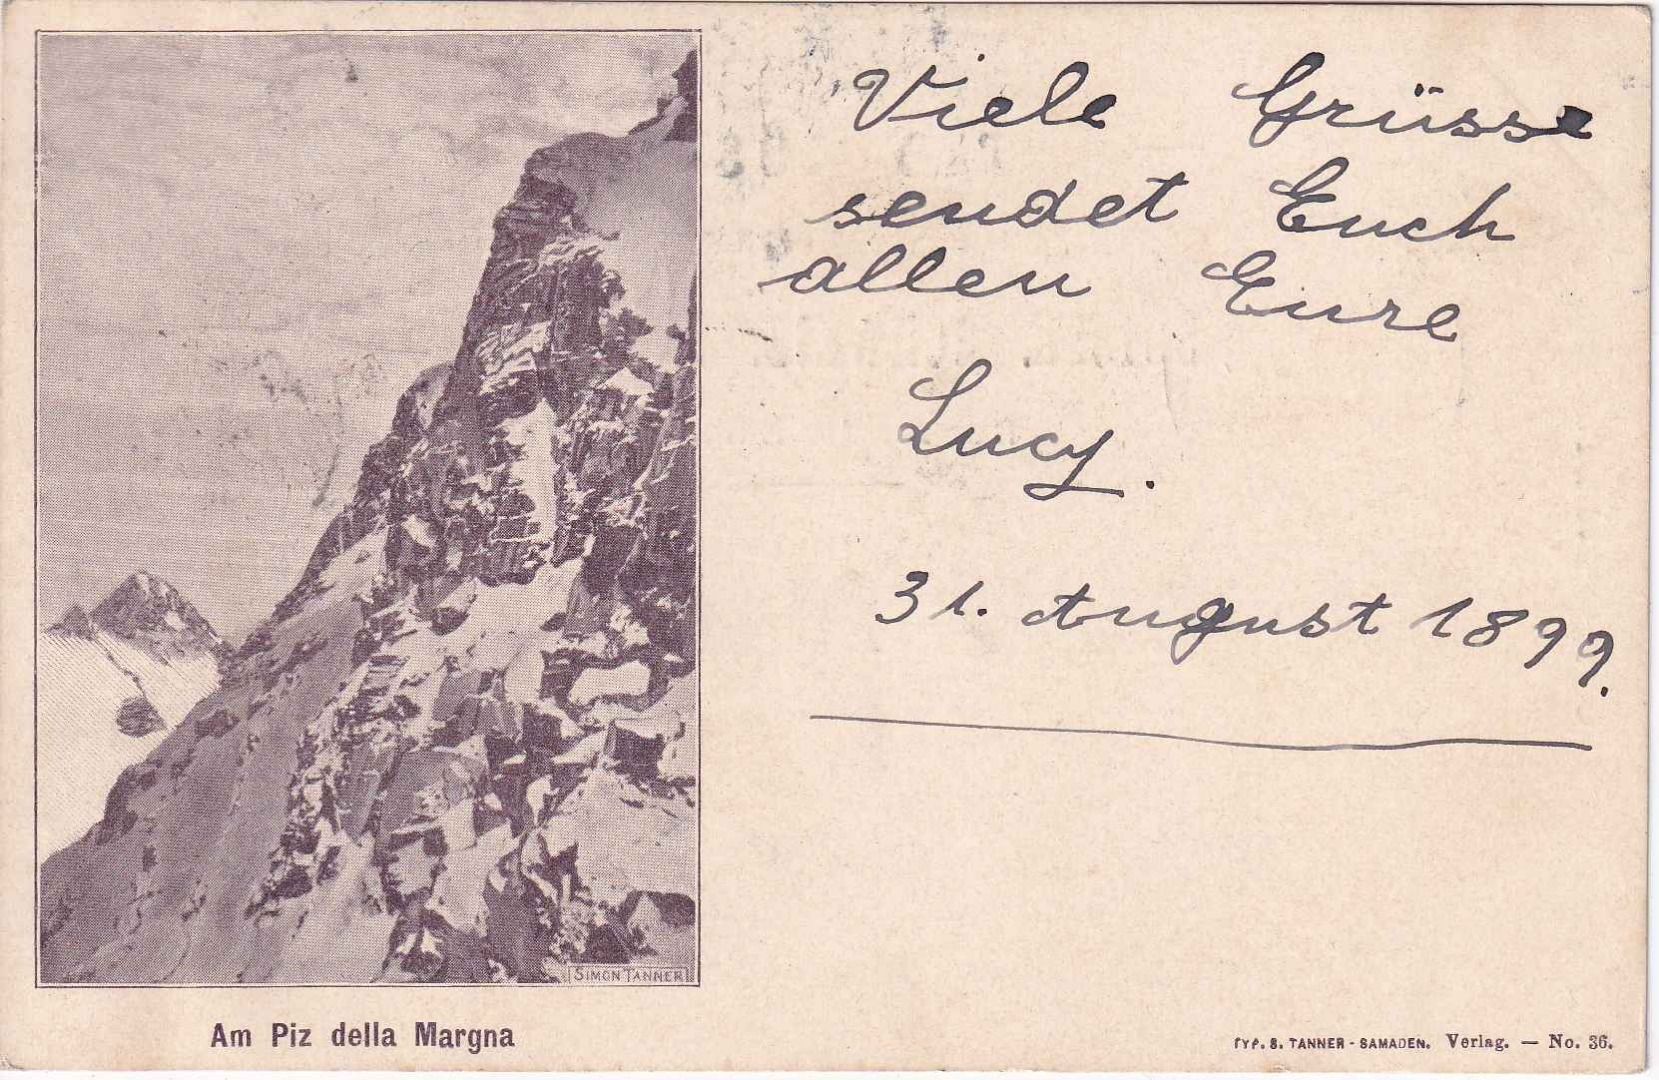 Viele Grüsse
sendet Euch
allen Eure
Lucy.
31. August 1899.
SIMON TANNER
Am Piz della Margna
TYP. S. TANNER - SAMADEN. Verlag. — No. 36.